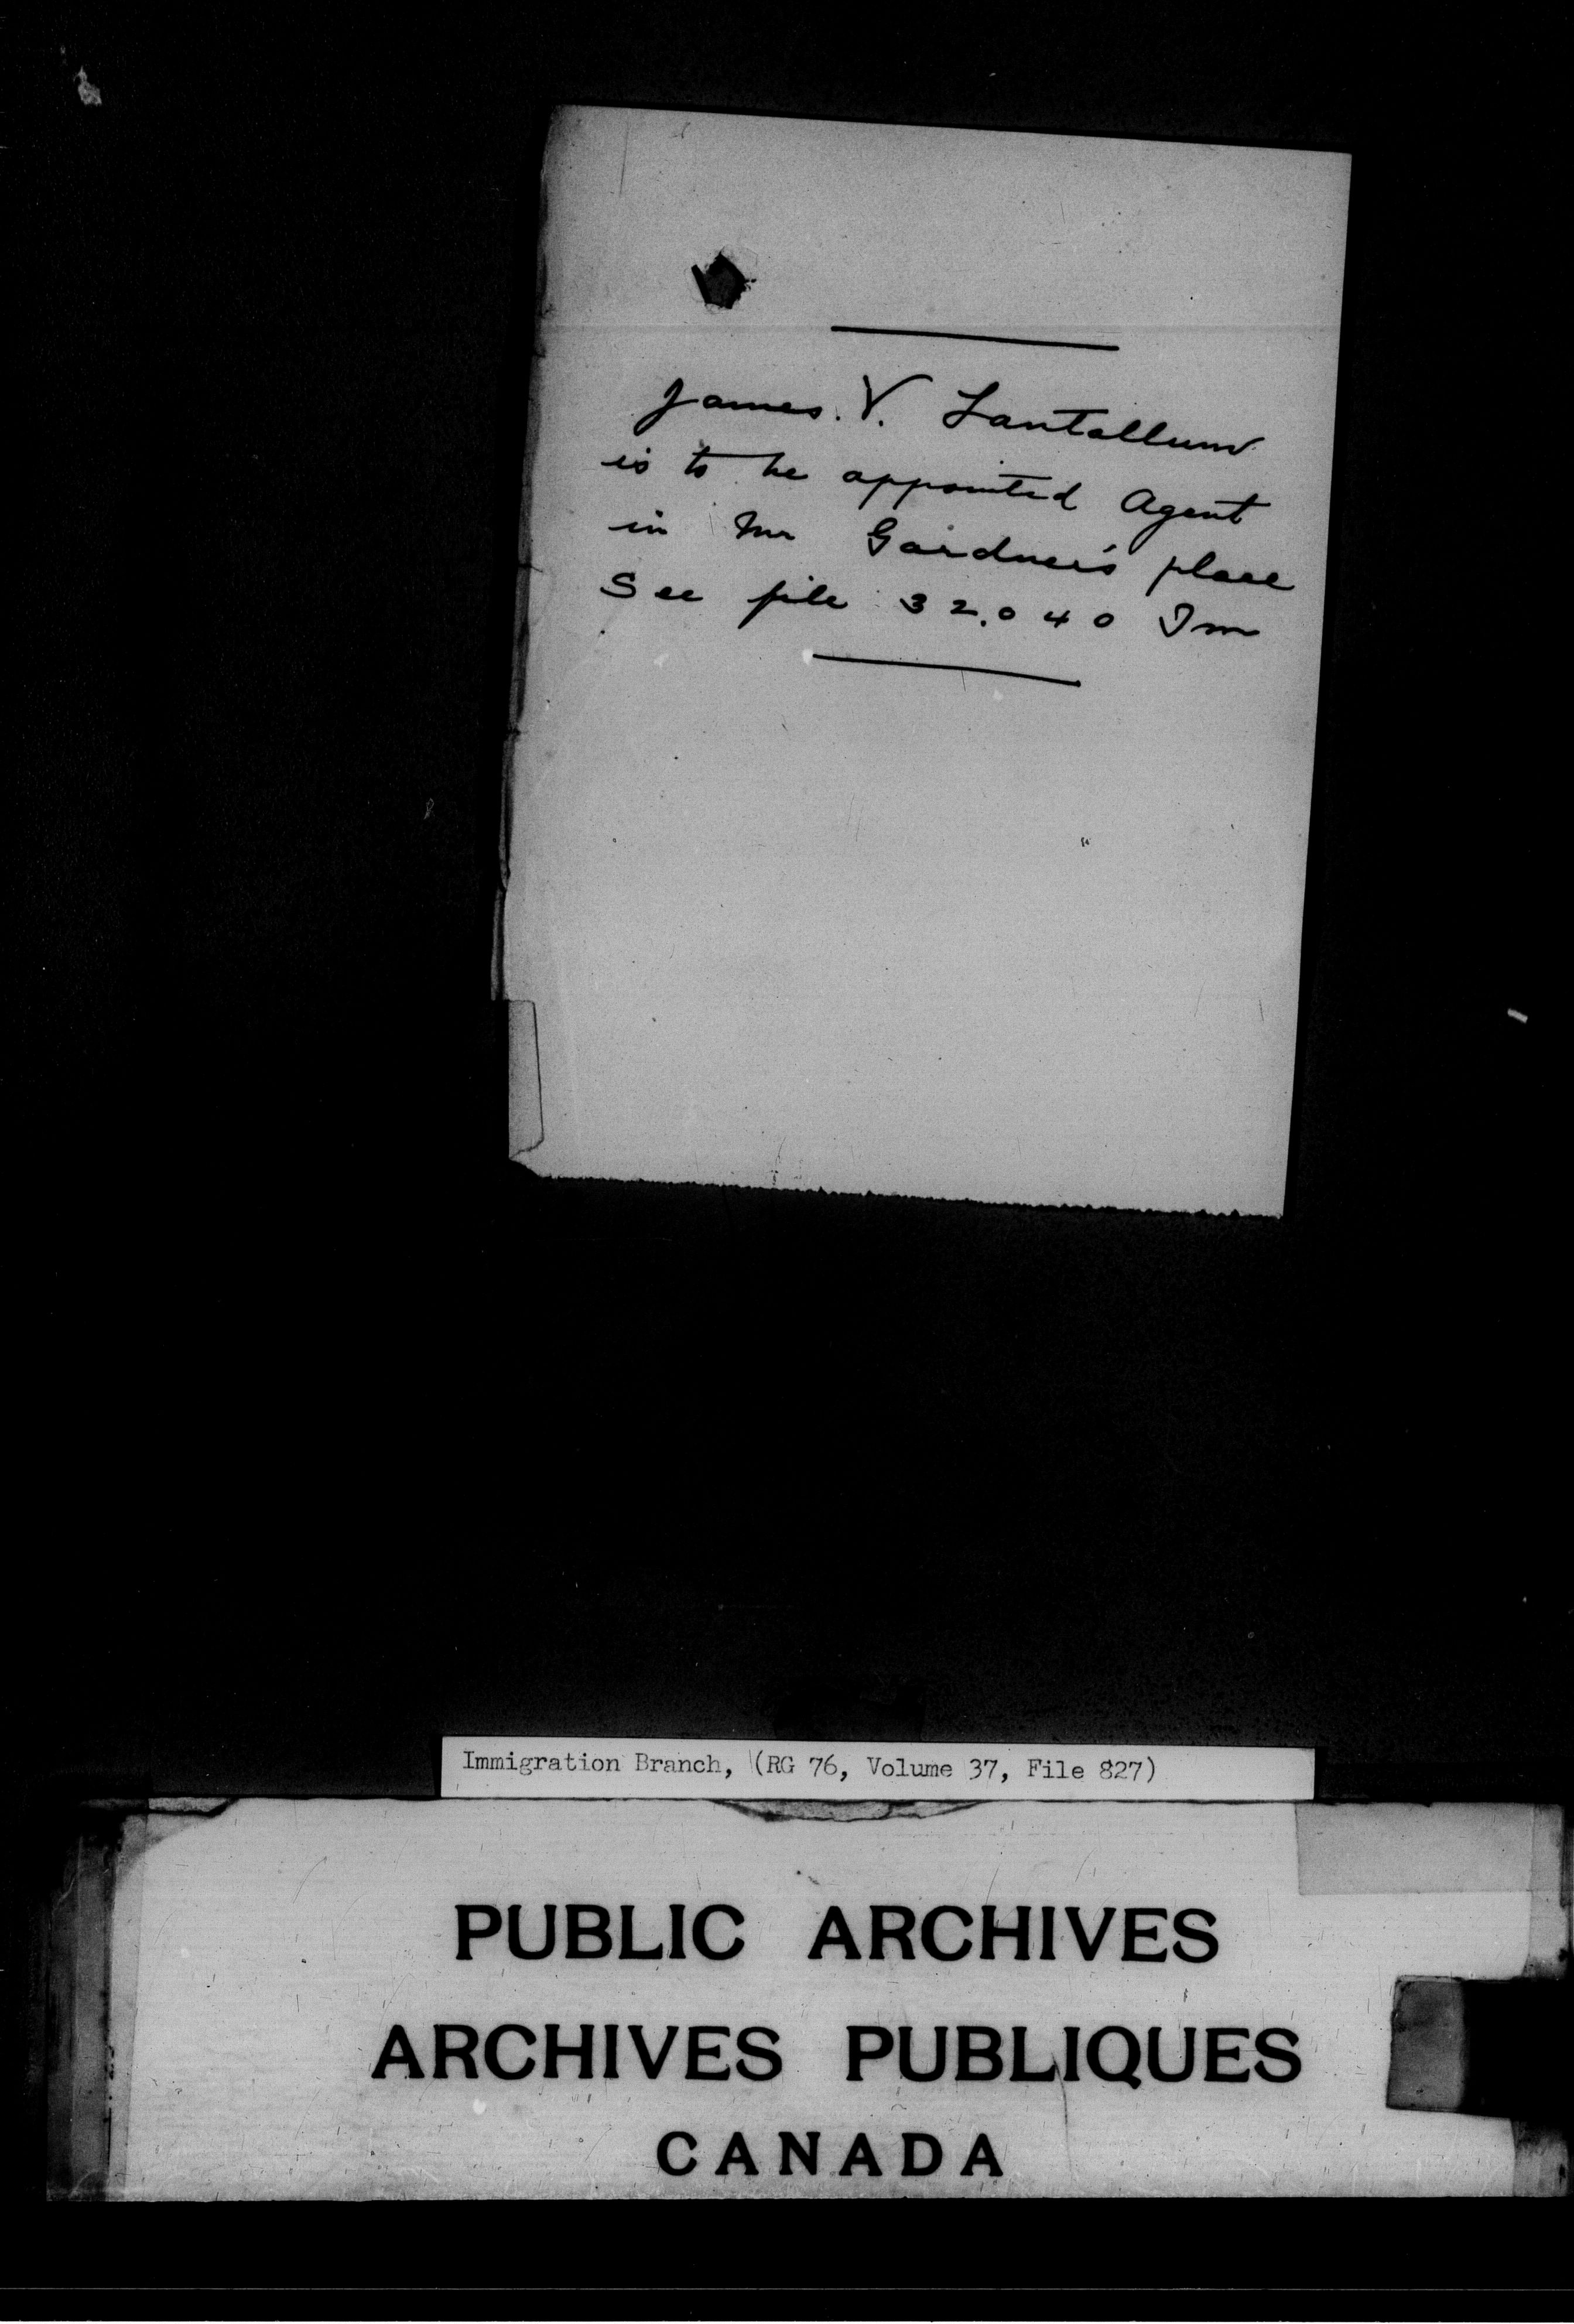 James. V. Lantallum
is to be appointed Agent
in Mr Gardner's place
See file 32.040 Im
Immigration Branch, (RG 76, Volume 37, File 827)
PUBLIC ARCHIVES
ARCHIVES PUBLIQUES
CANADA